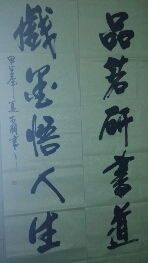 品茗研书道
戏墨悟人生